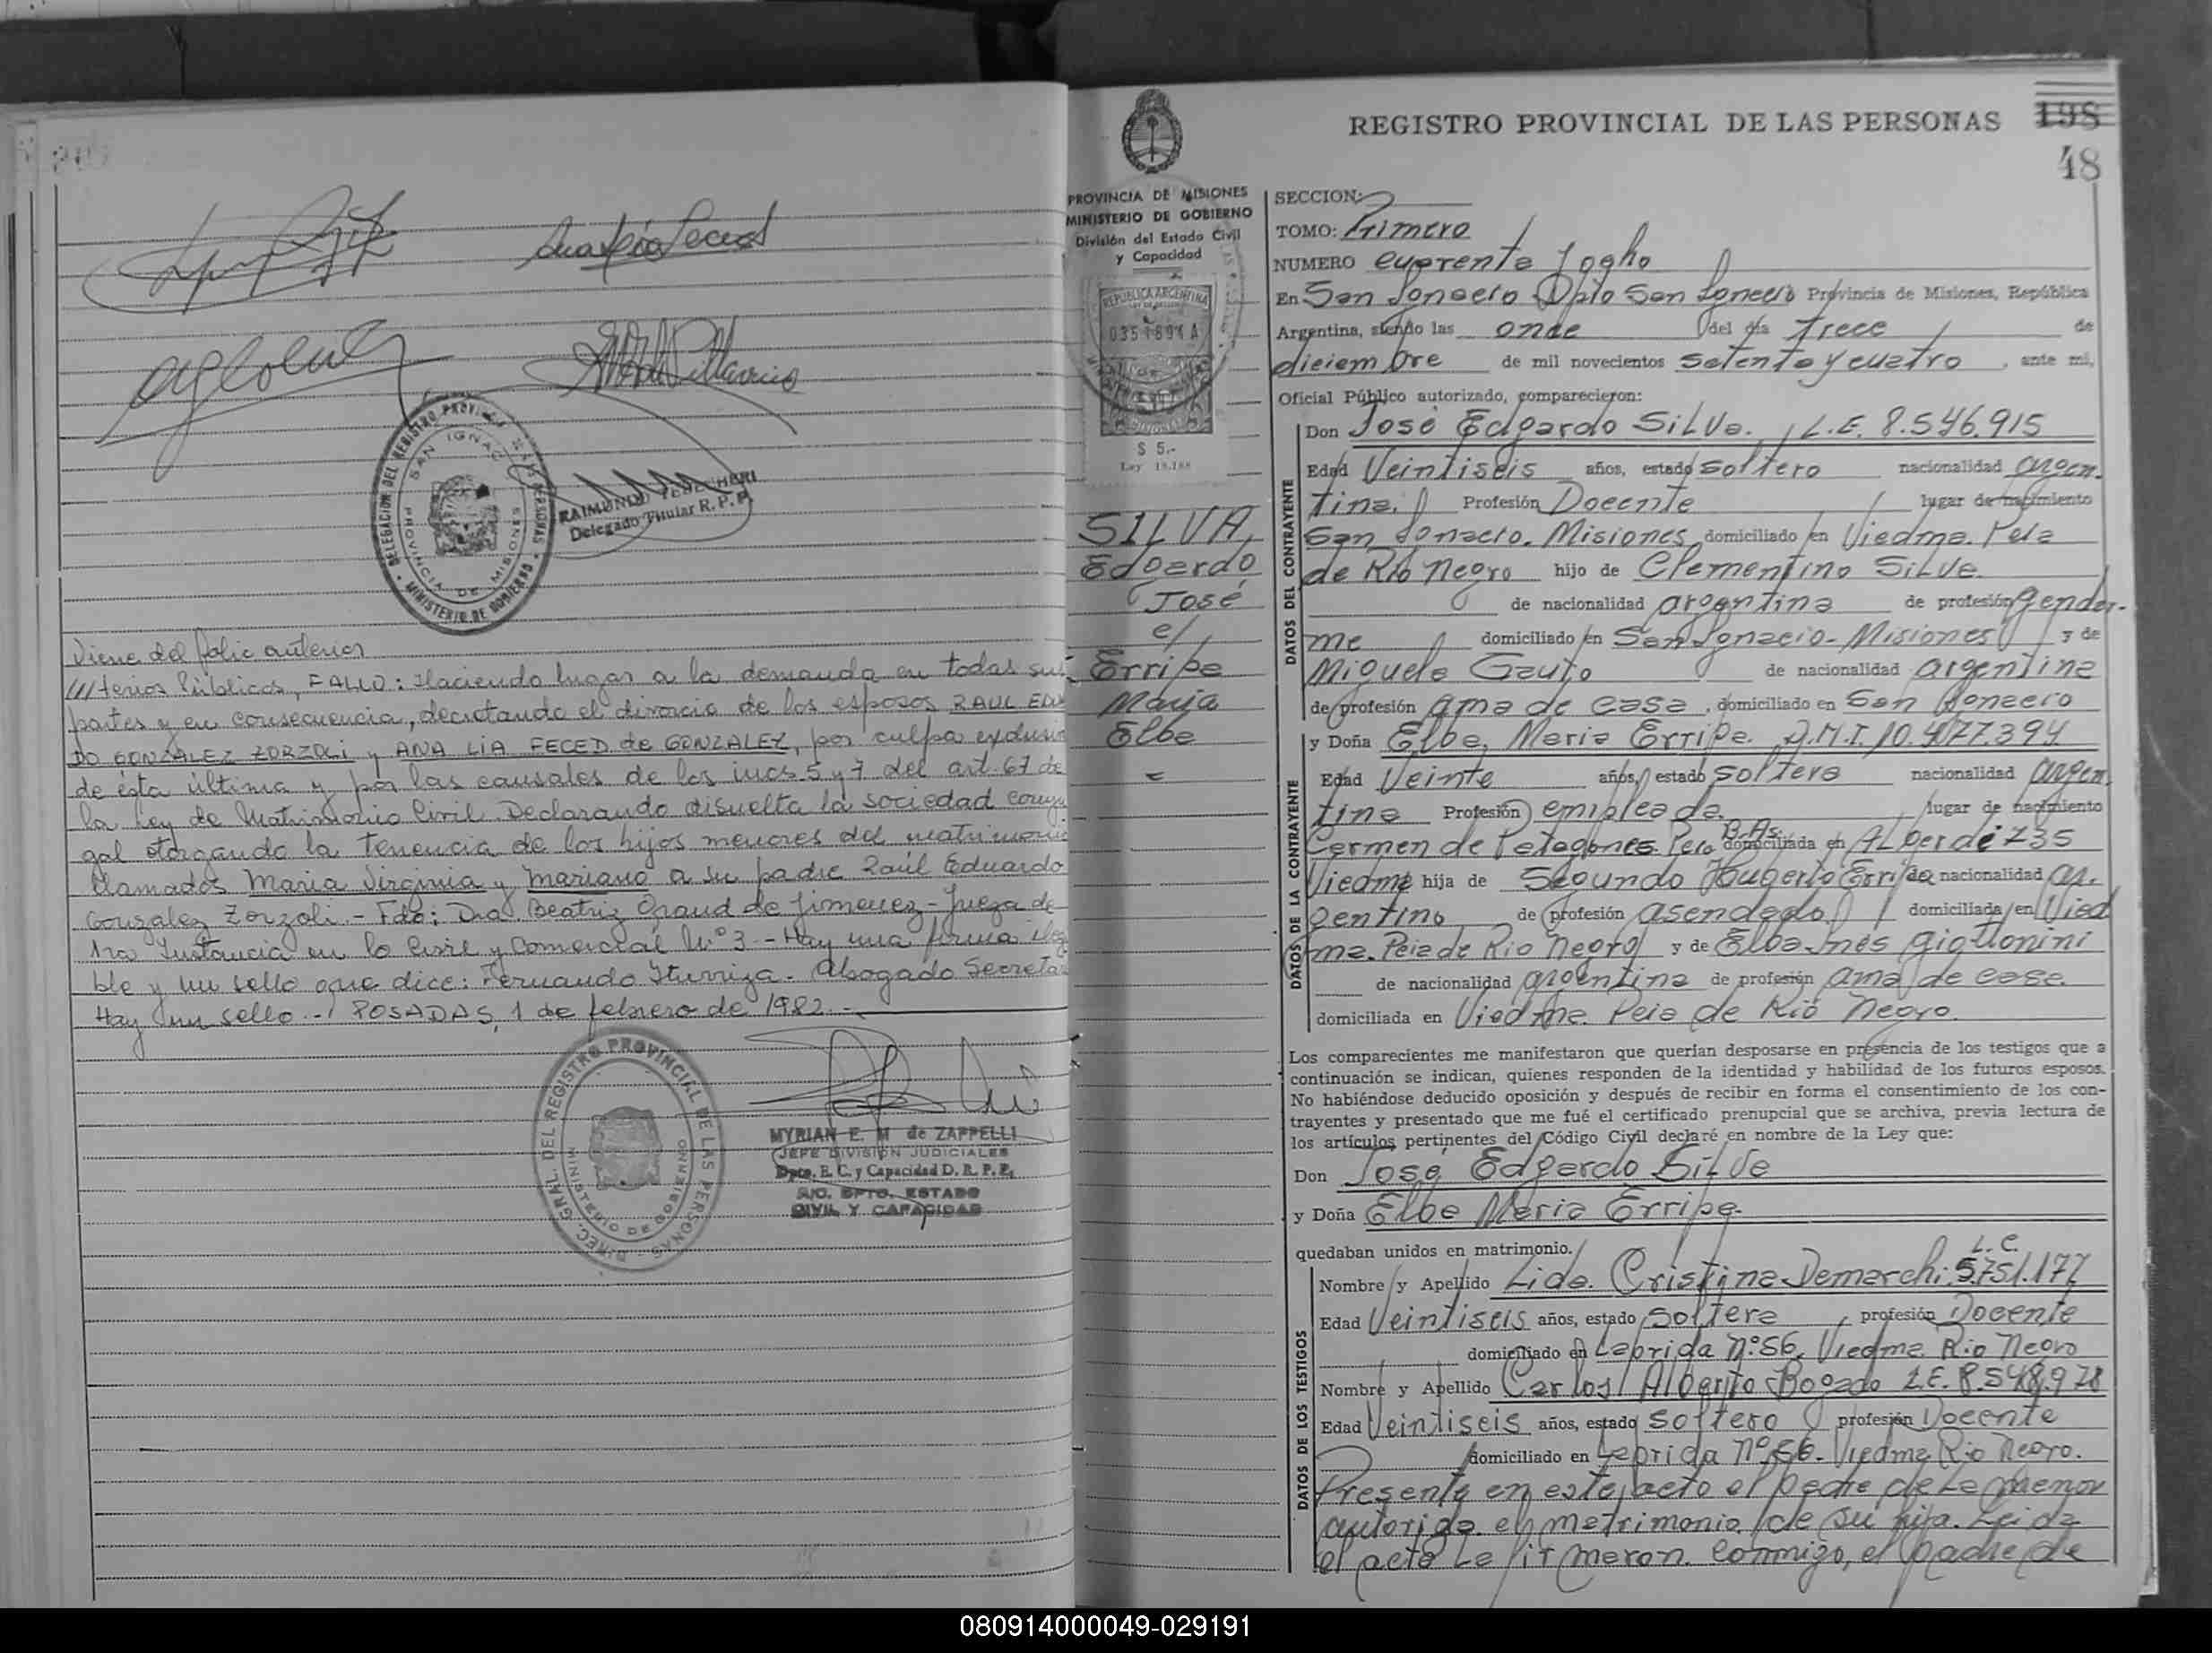 RAIMUNDO
Delegado Titular R. P. P.
DELEGACION DEL REGISTRO PROVINCIAL DE LAS PERSONAS
SAN IGNACIO
PROVINCIA DE MISIONES
MINISTERIO DE GOBIERNO
Viene del folio anterior
///terios Públicos, FALLO: Haciendo lugar a la demanda en todas sus
partes y en consecuencia, decretando el divorcio de los esposos RAUL EDUAR
DO GONZALEZ ZORZOLI y ANA LIA FECED de GONZALEZ, por culpa exclusiva
de ésta última y por las causales de los incs. 5 y 7 del art. 67 de
la Ley de Matrimonio Civil. Declarando disuelta la sociedad conyu
gal otorgando la tenencia de los hijos menores del matrimonio
llamados Maria Virginia y Mariano a su padre Raúl Eduardo
Gonzalez Zorzoli.- Fdo: Dra. Beatriz Graud de Jimenez - Jueza de
1ra Instancia en lo Civil y Comercial N° 3 - Hay una firma ilegi
ble y un sello que dice: Fernando Iturriza - Abogado Secretar
Hay un sello.- POSADAS, 1 de febrero de 1982.-
DIREC. GRAL. DEL REGISTRO PROVINCIAL DE LAS PERSONAS
MINISTERIO DE GOBIERNO
MYRIAN E. M de ZAPPELLI
JEFE DIVISION JUDICIALES
Dpto. E. C. y Capacidad D. R. P. P.
A/C. DPTO. ESTADO
CIVIL Y CAPACIDAD
REGISTRO PROVINCIAL DE LAS PERSONAS
198
48
PROVINCIA DE MISIONES
MINISTERIO DE GOBIERNO
División del Estado Civil
y Capacidad
REPUBLICA ARGENTINA
MISIONES
$ 5.-
Ley
SILVA
Edgardo
José
c/
Erripa
Maria
Elba
SECCION:
TOMO: Primero
NUMERO cuarenta y ocho
En San Ignacio Dpto San Ignacio Provincia de Misiones, República
Argentina, siendo las once del día trece de
diciembre de mil novecientos setenta y cuatro, ante mí,
Oficial Público autorizado, comparecieron:
DATOS DEL CONTRAYENTE
Don José Edgardo Silva. L.E. 8.546.915
Edad Veintiseis años, estado soltero nacionalidad argen-
tina. Profesión Docente lugar de nacimiento
San Ignacio. Misiones domiciliado en Viedma. Pcia
de Rio Negro hijo de Clementino Silva.
de nacionalidad argentina de profesión Gendar-
me domiciliado en San Ignacio - Misiones y de
Miguela Gauto de nacionalidad argentina
de profesión ama de casa, domiciliado en San Ignacio
DATOS DE LA CONTRAYENTE
y Doña Elba, Maria Erripa. D.N.I. 10.477.394
Edad Veinte años, estado soltera nacionalidad argen
tina Profesión empleada. lugar de nacimiento
Carmen de Patagones. Pcia B.As. domiciliada en Alberdi 735
Viedma hija de Segundo Hugerto Erripa nacionalidad ar-
gentino de profesión asendado domiciliada en Vied
ma. Pcia de Rio Negro y de Elba Inés Gigllonini
de nacionalidad argentina de profesión ama de casa.
domiciliada en Viedma. Pcia de Rio Negro.
Los comparecientes me manifestaron que querían desposarse en presencia de los testigos que a
continuación se indican, quienes responden de la identidad y habilidad de los futuros esposos.
No habiéndose deducido oposición y después de recibir en forma el consentimiento de los con-
trayentes y presentado que me fué el certificado prenupcial que se archiva, previa lectura de
los artículos pertinentes del Código Civil declaré en nombre de la Ley que:
Don José Edgardo Silva
y Doña Elba Maria Erripa.
quedaban unidos en matrimonio.
DATOS DE LOS TESTIGOS
Nombre y Apellido Lida. Cristina Demarchi. L.C. 5.751.177
Edad Veintiseis años, estado soltera profesión Docente
domiciliado en Laprida N°56. Viedma Rio Negro
Nombre y Apellido Carlos Alberto Bogado L.E. 8.548.978
Edad Veintiseis años, estado soltero profesión Docente
domiciliado en Laprida N°56. Viedma Rio Negro.
Presente en este acto el padre de la menor
autoriza el matrimonio de su hija. Leida
el acta la firmaron conmigo, el padre de
080914000049-029191